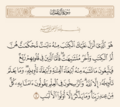 هُوَ الَّذِي أَنزَلَ عَلَيْكَ الْكِتَابَ مِنْهُ آيَاتٌ مُّحْكَمَاتٌ هُنَّ
أُمُّ الْكِتَابِ وَأُخَرُ مُتَشَابِهَاتٌ فَأَمَّا الَّذِينَ فِي قُلُوبِهِمْ زَيْغٌ
فَيَتَّبِعُونَ مَا تَشَابَهَ مِنْهُ ابْتِغَاءَ الْفِتْنَةِ وَابْتِغَاءَ تَأْوِيلِهِ وَمَا يَعْلَمُ
تَأْوِيلَهُ إِلَّا اللَّهُ وَالرَّاسِخُونَ فِي الْعِلْمِ يَقُولُونَ آمَنَّا بِهِ كُلٌّ
مِّنْ عِندِ رَبِّنَا وَمَا يَذَّكَّرُ إِلَّا أُولُو الْأَلْبَابِ